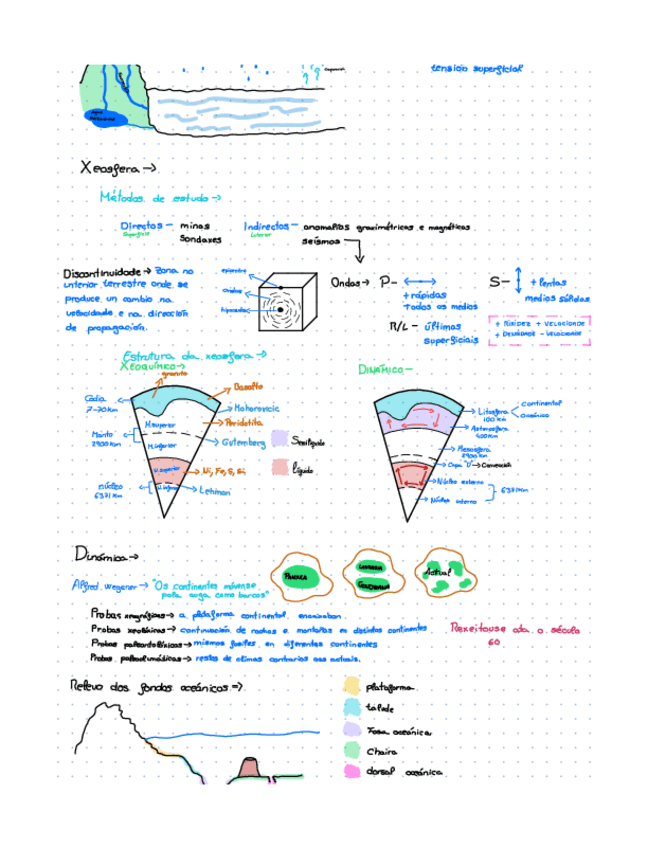 tensión superficial
Xeosfera →
Métodos de estudo →
Directos – minas
Superficie
sondaxes
Indirectos – anomalías gravimétricas e magnéticas
Interior
seísmos
Discontinuidade → Zona no
interior terrestre onde se
produce un cambio na
velocidade e na dirección
de propagación.
epicentro
ondas
hipocentro
Ondas → P –
+ rápidas
Todos os medios
S –
+ lentas
medios sólidos
R/L – últimas
superficiais
+ RIXIDEZ + VELOCIDADE
+ DENSIDADE - VELOCIDADE
Estrutura da xeosfera →
XEOQUÍMICO →
granito
Basalto
Codia
7-70km
Mohorovicic
M.superior
Peridotita
Manto
2900km
Gutemberg
M.inferior
N.superior
Ni, Fe, S, Si
Núcleo
6371km
Lehman
Semilíquido
líquido
DINÁMICO –
Litosfera
100km
Continental
Oceánica
Astenosfera
Mesosfera
2900km
Capa "D" → Convección
Núcleo externo
6371km
Núcleo interno
Dinámica →
Alfred Wegener → "Os continentes móvense
pola auga como barcos"
PANXEA
LAURASIA
GONDWANA
Actual
Probas xeográficas → a plataforma continental encaixaban.
Probas xeolóxicas → continuación de rochas e montañas en distintos continentes
Probas paleontolóxicas → mismos fósiles en diferentes continentes
Probas paleoclimáticas → restos de climas contrarios aos actuais.
Rexeitouse ata o século
60
Relevo dos fondos oceánicos =>
plataforma
talude
Fosa oceánica
Chaira
dorsal oceánica